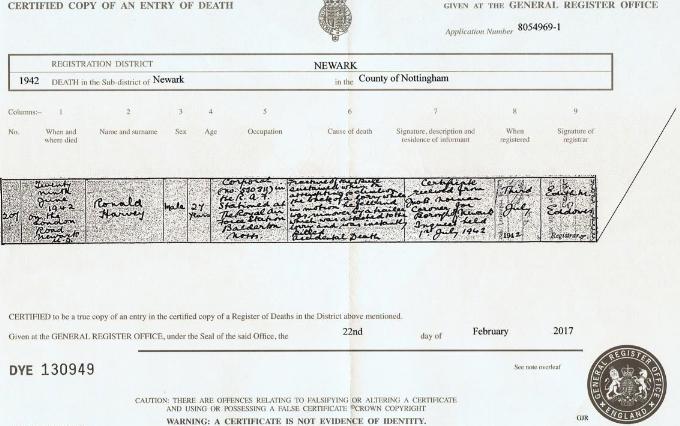 CERTIFIED COPY OF AN ENTRY OF DEATH
GIVEN AT THE GENERAL REGISTER OFFICE
Application Number 8054969-1
REGISTRATION DISTRICT NEWARK
1942 DEATH in the Sub-district of Newark in the County of Nottingham
Columns:– 1 2 3 4 5 6 7 8 9
No. When and where died Name and surname Sex Age Occupation Cause of death Signature, description and residence of informant When registered Signature of registrar
207
Twenty
ninth
June
1942
on the
London
Road
Newark
Ronald
Harvey
Male
27
Years
Corporal
in
the R.A.F.
stationed at
The Royal Air
Force
Balderton
Notts.
Fractured
sustained when
and was instantly
killed
Accidental Death
Certificate
received from
Coroner for
Newark
Inquest held
1st July 1942
Third
July
1942
Registrar
CERTIFIED to be a true copy of an entry in the certified copy of a Register of Deaths in the District above mentioned.
Given at the GENERAL REGISTER OFFICE, under the Seal of the said Office, the 22nd day of February 2017
DYE 130949
See note overleaf
CAUTION: THERE ARE OFFENCES RELATING TO FALSIFYING OR ALTERING A CERTIFICATE
AND USING OR POSSESSING A FALSE CERTIFICATE ©CROWN COPYRIGHT
WARNING: A CERTIFICATE IS NOT EVIDENCE OF IDENTITY.
GENERAL REGISTER OFFICE
ENGLAND